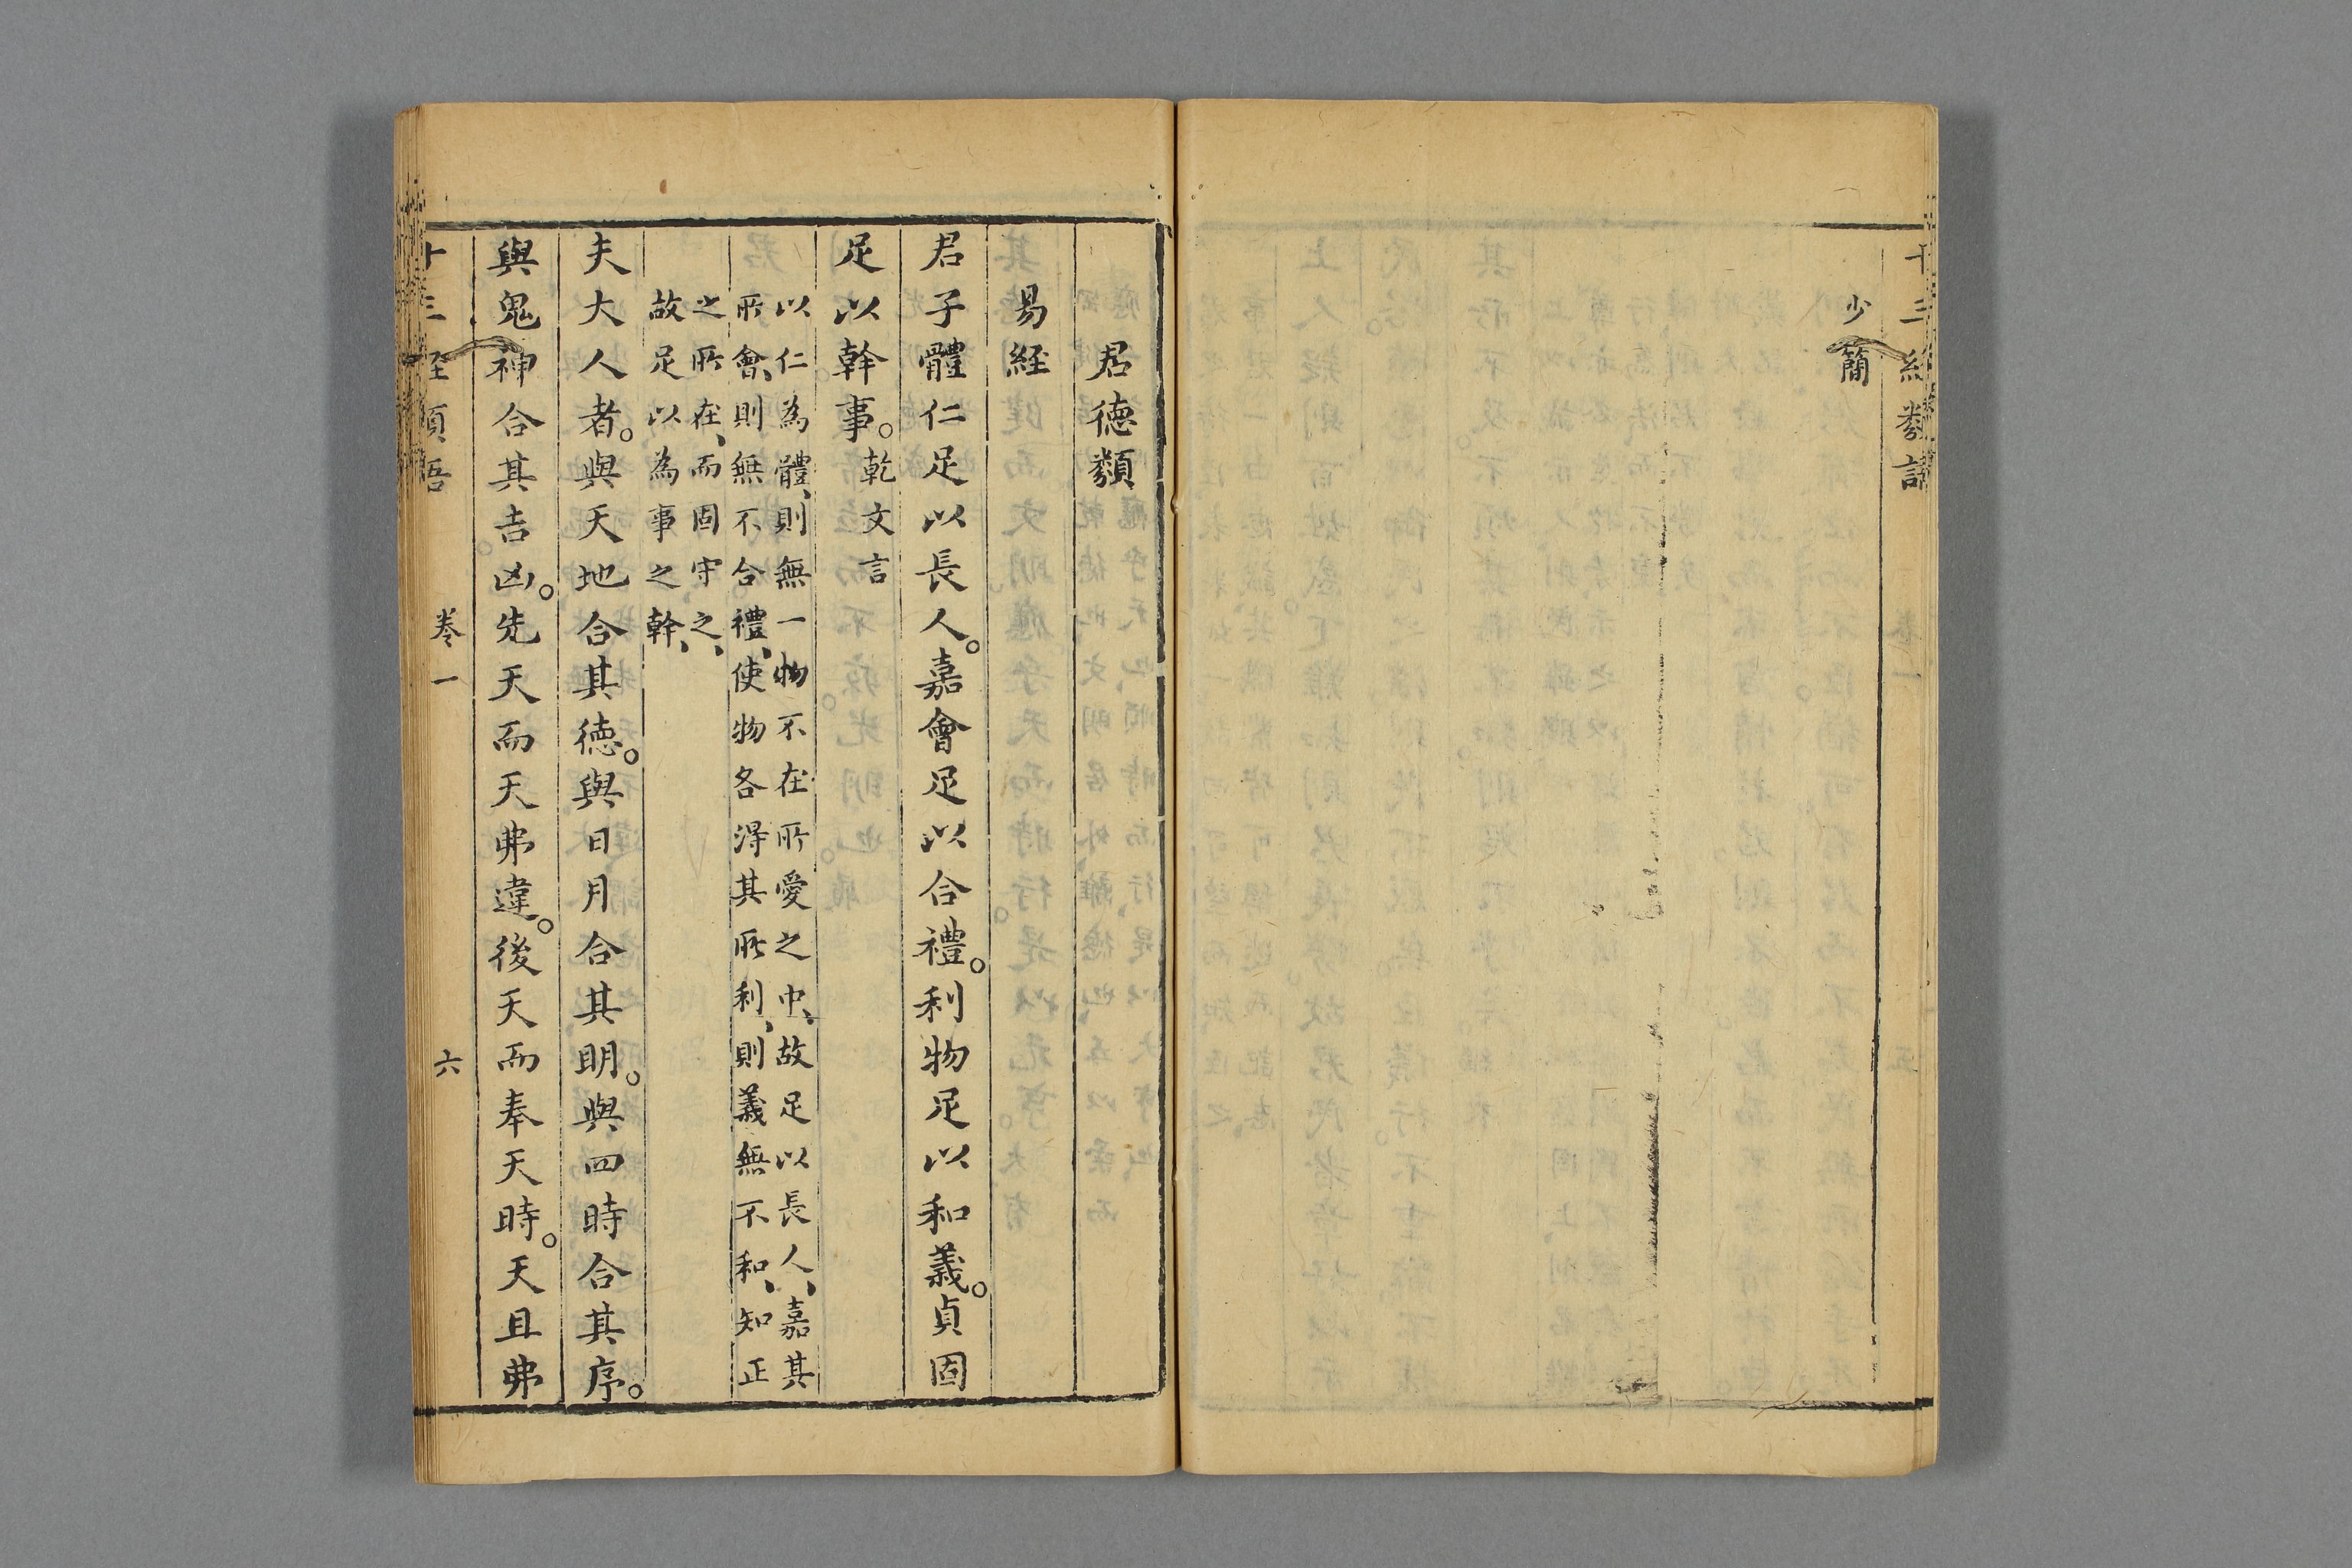 十三經類語
少簡
君德類
易経
君子體仁足以長人。嘉會足以合禮。利物足以和義。貞固
足以幹事。乾文言
以仁為體、則無一物不在所愛之中、故足以長人、嘉其
所會、則無不合禮、使物各得其所利、則義無不和、知正
之所在、而固守之、
故足以為事之幹、
夫大人者。與天地合其德。與日月合其明。與四時合其序。
與鬼神合其吉凶。先天而天弗違。後天而奉天時。天且弗
十三經類語 卷一 六